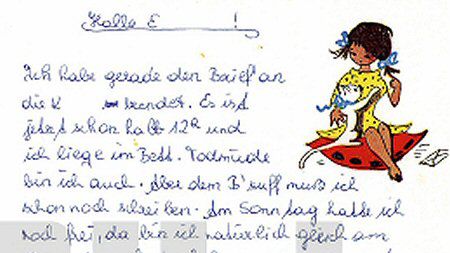 Hallo E !
Ich habe gerade den Brief an
die K beendet. Es ist
jetzt schon halb 12h und
ich liege im Bett. Todmüde
bin ich auch. Aber dem B' muß ich
schon noch schreiben. Am Sonntag hatte ich
noch frei, da bin ich natürlich gleich am